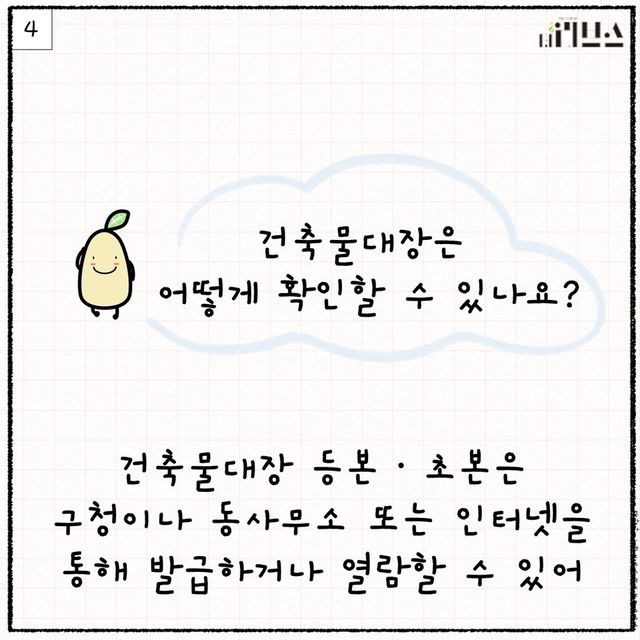 4
건축물대장은
어떻게 확인할 수 있나요?
건축물대장 등본 · 초본은
구청이나 동사무소 또는 인터넷을
통해 발급하거나 열람할 수 있어